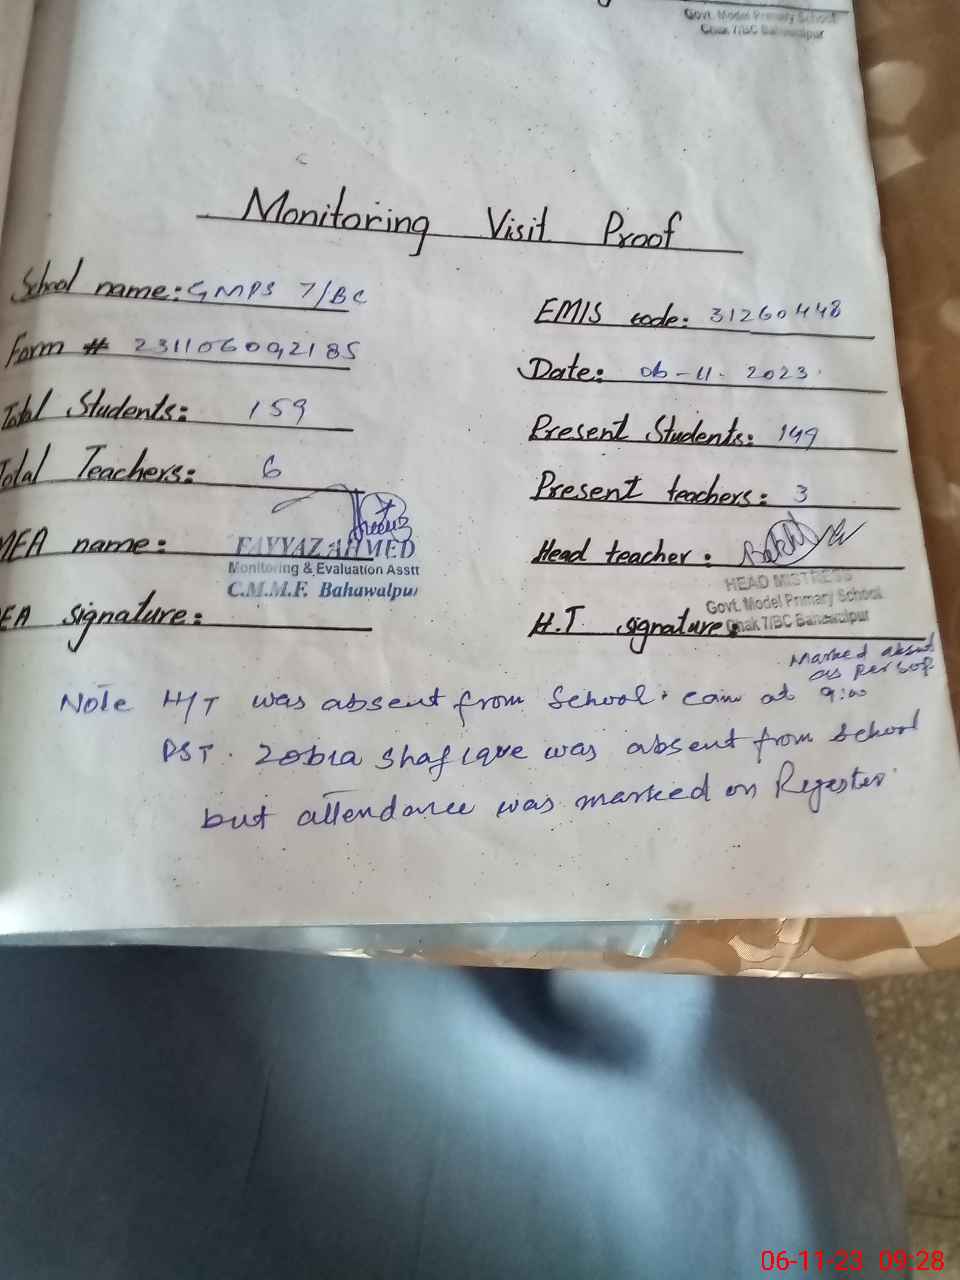 Govt. Model Primary School
Chak 7/BC Bahawalpur
Monitoring Visit Proof
School name: GMPS 7/BC
EMIS code: 31260448
Form # 231106092185
Date: 06-11-2023
Total Students: 159
Present Students: 149
Total Teachers: 6
Present teachers: 3
MEA name: FAYYAZ AHMED
Monitoring & Evaluation Asstt
C.M.M.F. Bahawalpur
Head teacher:
HEAD MISTRESS
Govt. Model Primary School
Chak 7/BC Bahawalpur
EA signature:
H.T signature:
Marked absent
as per SOP.
Note H/T was absent from School. Came at 9:00
PST. Zobia Shafique was absent from School
but attendance was marked on Regester
06-11-23 09:28